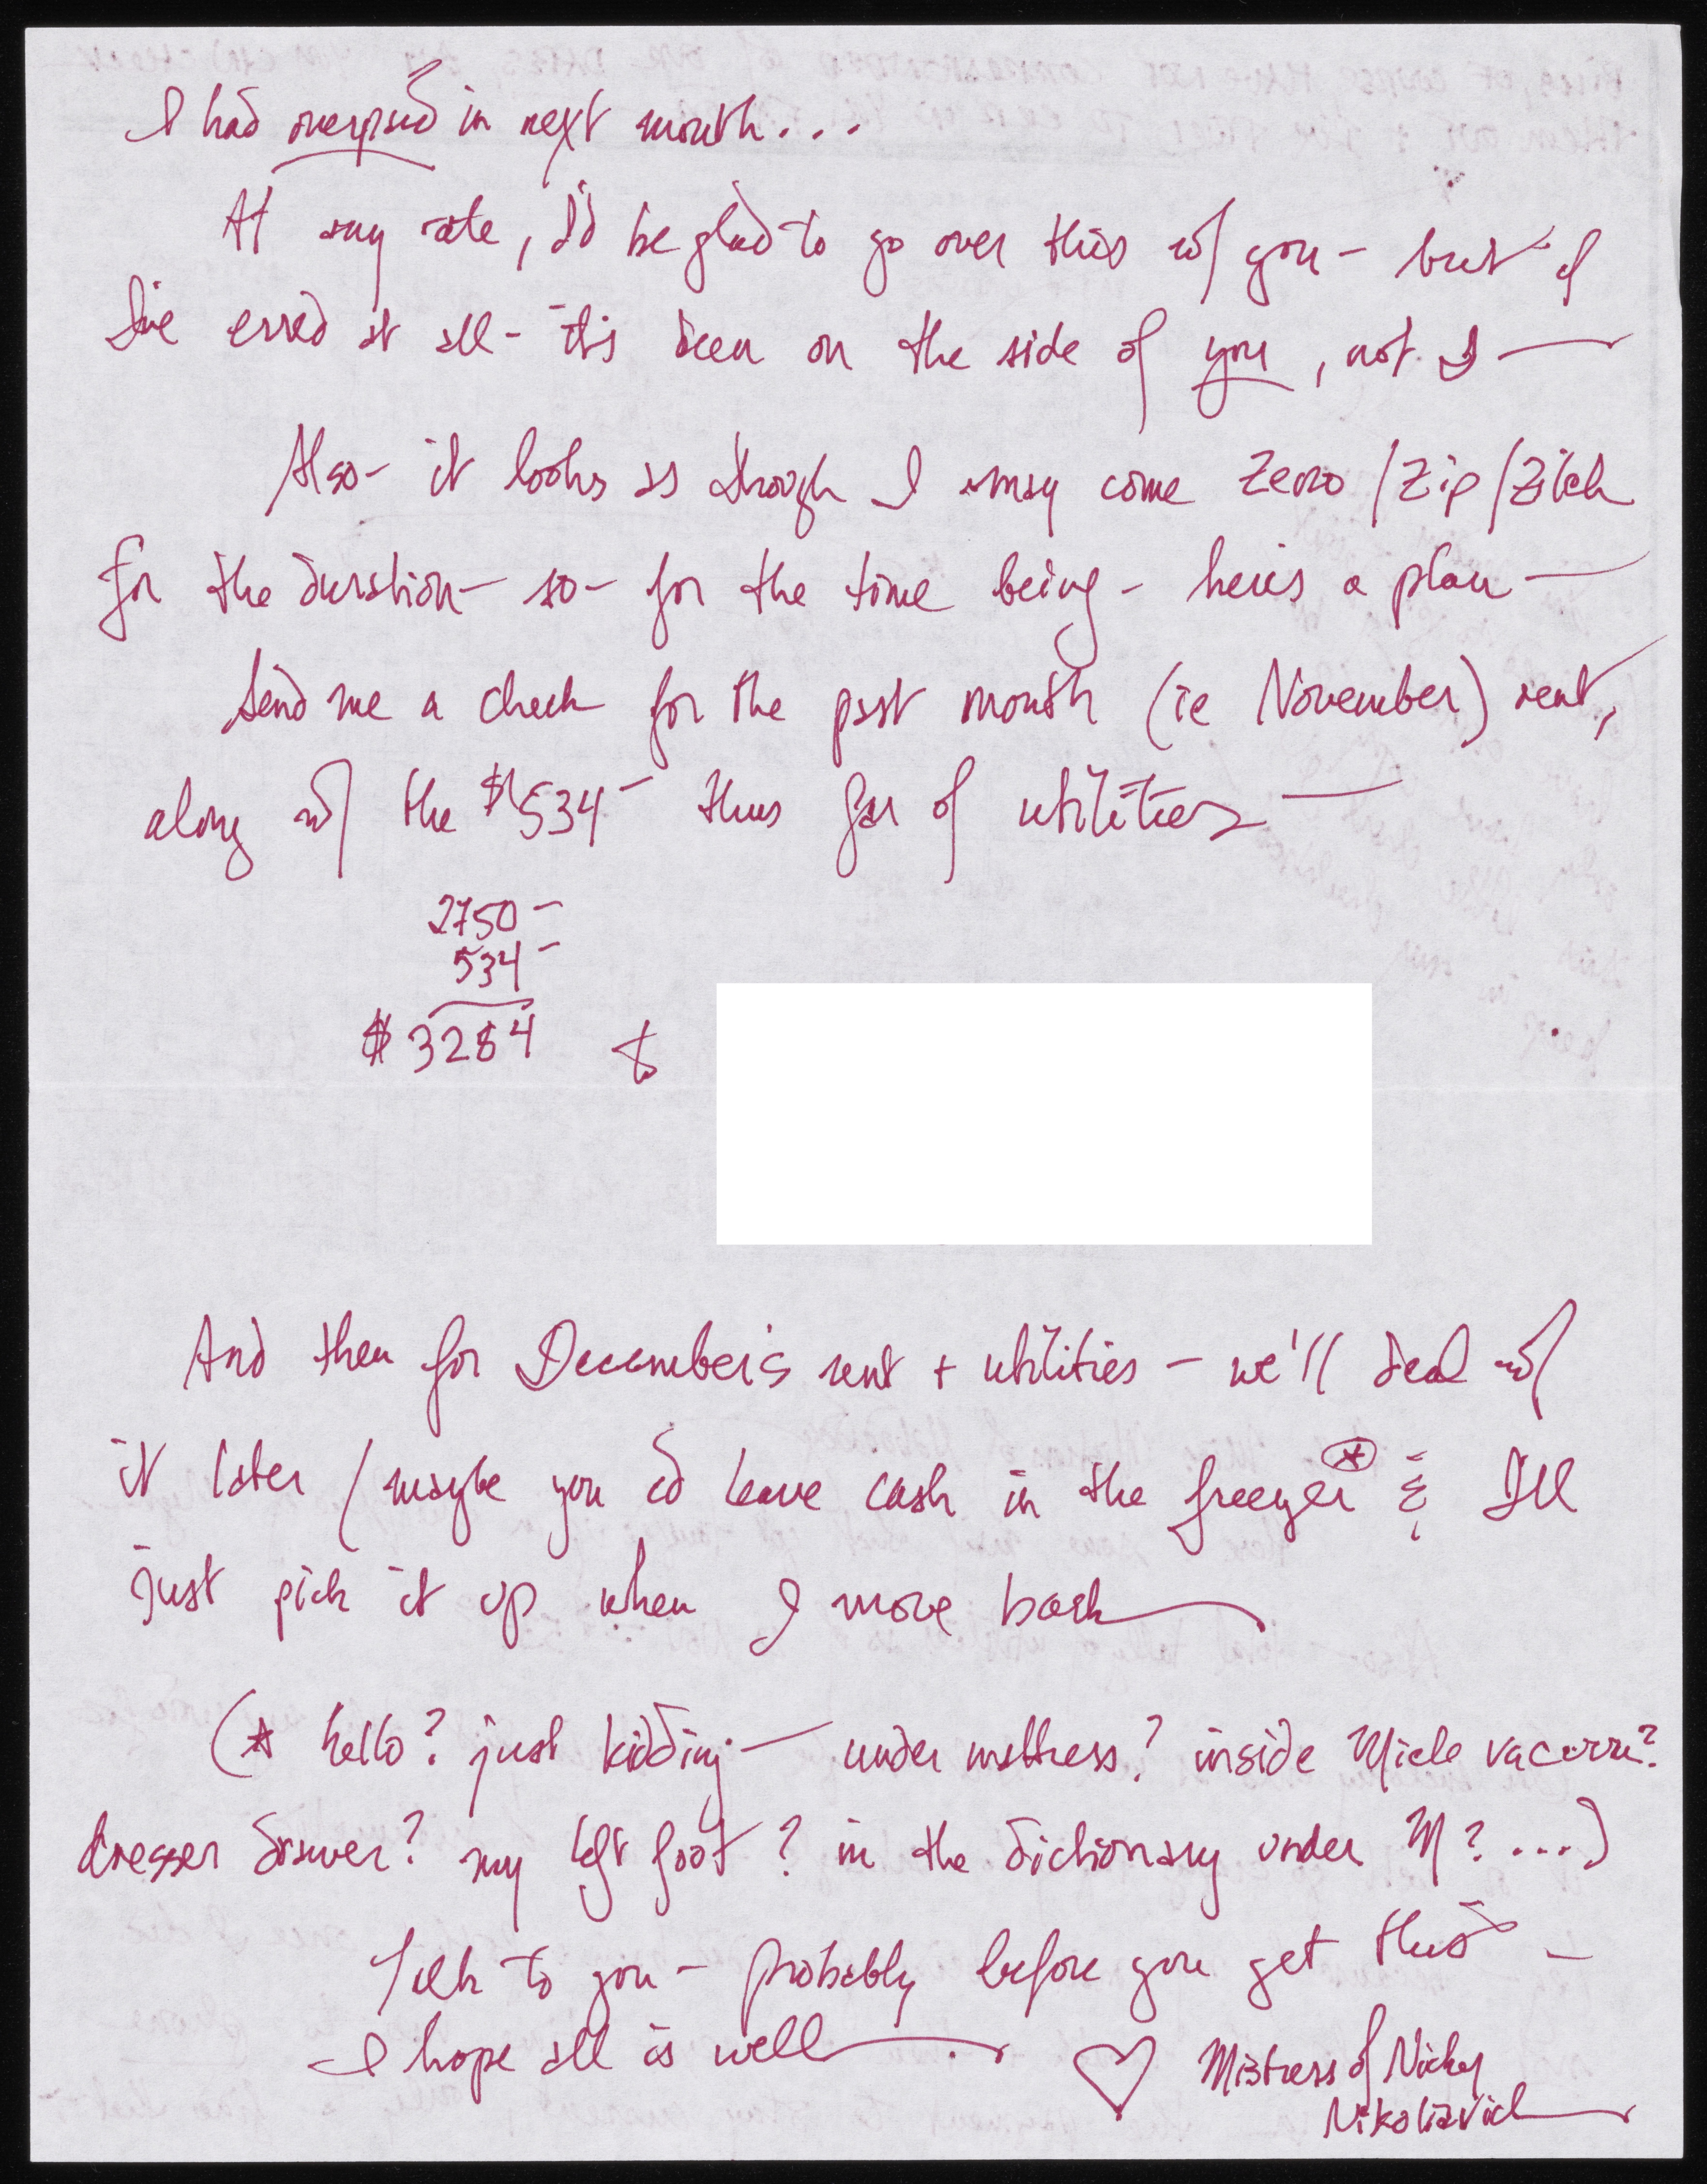 I had overpaid in next month...
At any rate, I'd be glad to go over this w/ you - but if
I've erred at all - it's been on the side of you, not I —
Also - it looks as though I may come Zero/Zip/Zilch
for the duration - so - for the time being - here's a plan —
Send me a check for the past month (ie November) rent,
along w/ the $534- thus far of utilities —
2750-
534-
$3284 to
And then for December's rent + utilities - we'll deal w/
it later (maybe you cd leave cash in the freezer* & I'll
just pick it up when I move back
(* hello? just kidding — under mattress? inside Miele vacuum?
dresser drawer? my left foot? in the dictionary under M?...)
Talk to you - probably before you get this -
I hope all is well — . ♡ Mistress of Nicky
Nikolaivich